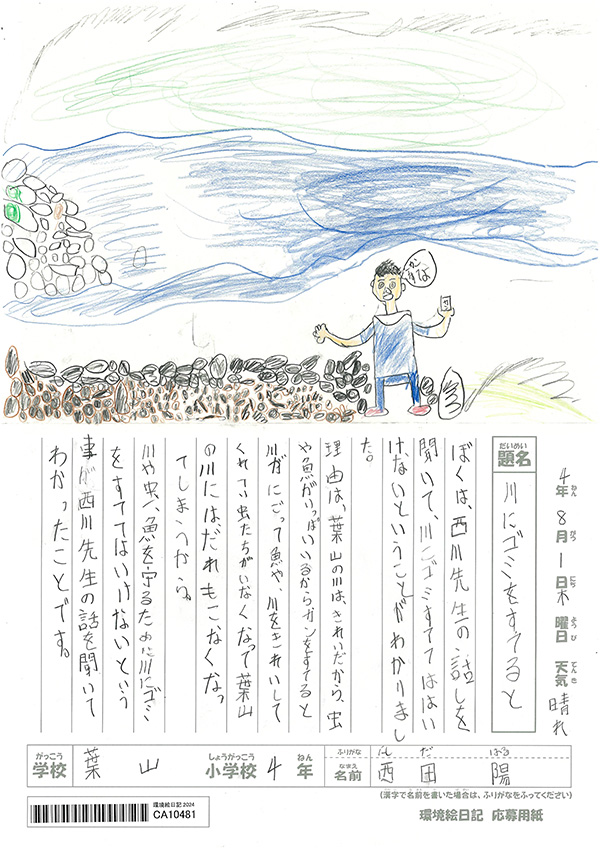 かん
すな
4年 8月 1日 木曜日 天気 晴れ
ねん がつ にち ようび てんき
だいめい
題名 川にゴミをすてると
ぼくは、西川先生の話しを
聞いて、川にゴミすててははい
けないということがわかりまし
た。
理由は、葉山の川は、きれいだから、虫
や魚がいっぱいいるからカンをすてると
川がにごって魚や、川をきれいにして
くれてい虫たちがいなくなって葉山
の川にはだれもこなくなっ
てしまうから。
川や虫、魚を守るために川にゴミ
をすててはいけないという
事が西川先生の話を聞いて
わかったことです。
がっこう しょうがっこう ねん ふりがな にしだ はる
学校 葉山 小学校 4年 名前 西田 陽
なまえ
(漢字で名前を書いた場合は、ふりがなをふってください)
環境絵日記2024
CA10481
環境絵日記 応募用紙